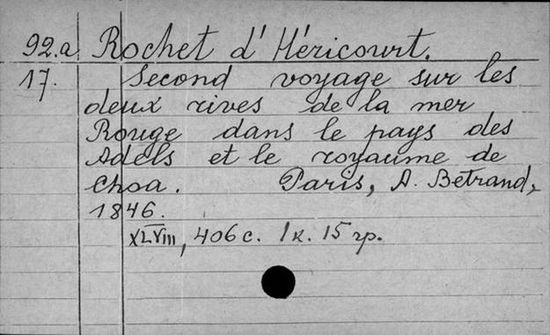 92.a Rochet d'Héricourt.
17. Second voyage sur les
deux rives de la mer
Rouge dans le pays des
Adels et le royaume de
Choa. Paris, A. Betrand,
1846.
XLVIII, 406 c. 1 к. 15 гр.